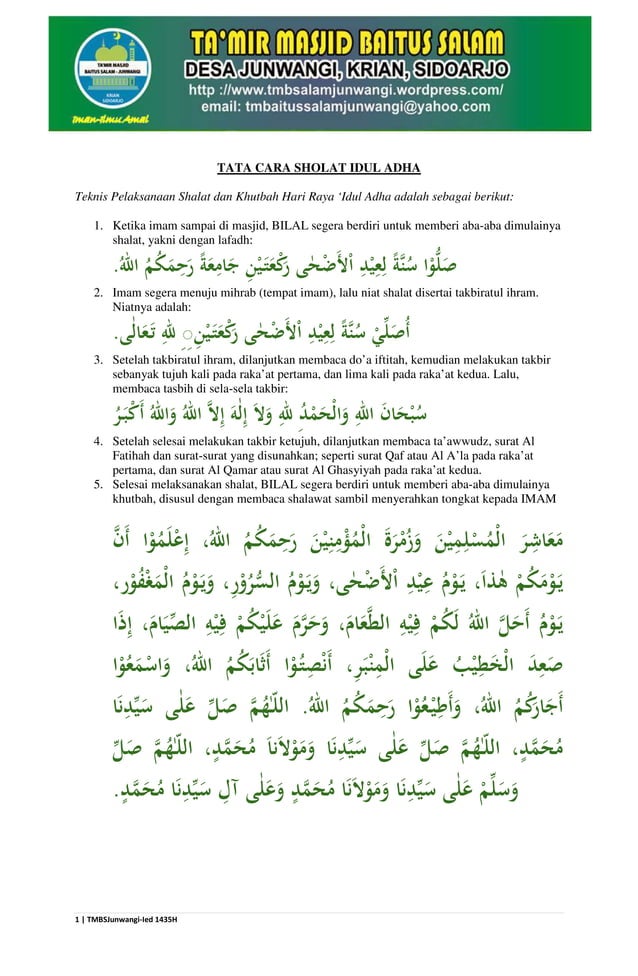 TA'MIR MASJID BAITUS SALAM
DESA JUNWANGI, KRIAN, SIDOARJO
http ://www.tmbsalamjunwangi.wordpress.com/
email: tmbaitussalamjunwangi@yahoo.com
TA'MIR MASJID
BAITUS SALAM - JUNWANGI
KRIAN
SIDOARJO
Iman-Ilmu-Amal
TATA CARA SHOLAT IDUL ADHA
Teknis Pelaksanaan Shalat dan Khutbah Hari Raya ‘Idul Adha adalah sebagai berikut:
1. Ketika imam sampai di masjid, BILAL segera berdiri untuk memberi aba-aba dimulainya
shalat, yakni dengan lafadh:
صَلُّوْا سُنَّةً لِعِيْدِ اْلأَضْحٰى رَكْعَتَيْنِ جَامِعَةً رَحِمَكُمُ اللهُ.
2. Imam segera menuju mihrab (tempat imam), lalu niat shalat disertai takbiratul ihram.
Niatnya adalah:
أُصَلِّيْ سُنَّةً لِعِيْدِ اْلأَضْحٰى رَكْعَتَيْنِ ِ للهِ تَعَالٰى.
3. Setelah takbiratul ihram, dilanjutkan membaca do’a iftitah, kemudian melakukan takbir
sebanyak tujuh kali pada raka’at pertama, dan lima kali pada raka’at kedua. Lalu,
membaca tasbih di sela-sela takbir:
سُبْحَانَ اللهِ وَالْحَمْدُ ِ للهِ وَلاَ إِلٰهَ إِلاَّ اللهُ وَاللهُ أَكْبَرُ
4. Setelah selesai melakukan takbir ketujuh, dilanjutkan membaca ta’awwudz, surat Al
Fatihah dan surat-surat yang disunahkan; seperti surat Qaf atau Al A’la pada raka’at
pertama, dan surat Al Qamar atau surat Al Ghasyiyah pada raka’at kedua.
5. Selesai melaksanakan shalat, BILAL segera berdiri untuk memberi aba-aba dimulainya
khutbah, disusul dengan membaca shalawat sambil menyerahkan tongkat kepada IMAM
مَعَاشِرَ الْمُسْلِمِيْنَ وَزُمْرَةَ الْمُؤْمِنِيْنَ رَحِمَكُمُ اللهُ، إِعْلَمُوْا أَنَّ
يَوْمَكُمْ هٰذاَ، يَوْمُ عِيْدِ اْلأَضْحٰى، وَيَوْمُ السُّرُوْرِ، وَيَوْمُ الْمَغْفُوْرِ،
يَوْمُ أَحَلَّ اللهُ لَكُمْ فِيْهِ الطَّعَامَ، وَحَرَّمَ عَلَيْكُمْ فِيْهِ الصِّيَامَ، إِذَا
صَعِدَ الْخَطِيْبُ عَلَى الْمِنْبَرِ، أَنْصِتُوْا أَثَابَكُمُ اللهُ، وَاسْمَعُوْا
أَجَارَكُمُ اللهُ، وَأَطِيْعُوْا رَحِمَكُمُ اللهُ. اللّٰهُمَّ صَلِّ عَلٰى سَيِّدِنَا
مُحَمَّدٍ، اللّٰهُمَّ صَلِّ عَلٰى سَيِّدِنَا وَمَوْلاَناَ مُحَمَّدٍ، اللّٰهُمَّ صَلِّ
وَسَلِّمْ عَلٰى سَيِّدِنَا وَمَوْلاَنَا مُحَمَّدٍ وَعَلٰى آلِ سَيِّدِنَا مُحَمَّدٍ.
1 | TMBSJunwangi-Ied 1435H